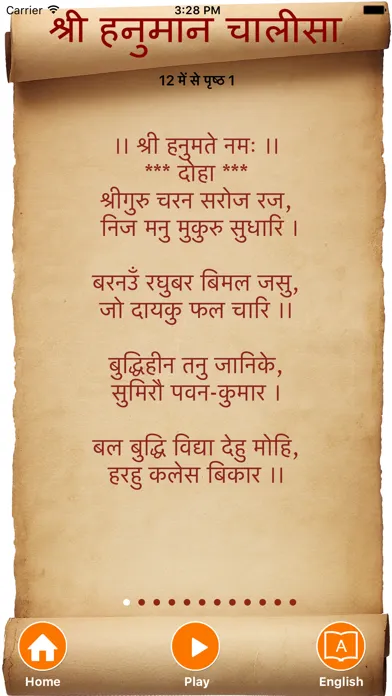 Carrier 3:28 PM
श्री हनुमान चालीसा
12 में से पृष्ठ 1
।। श्री हनुमते नमः ।।
*** दोहा ***
श्रीगुरु चरन सरोज रज,
निज मनु मुकुरु सुधारि ।
बरनउँ रघुबर बिमल जसु,
जो दायकु फल चारि ।।
बुद्धिहीन तनु जानिके,
सुमिरौ पवन-कुमार ।
बल बुद्धि विद्या देहु मोहि,
हरहु कलेस बिकार ।।
A
Home Play English